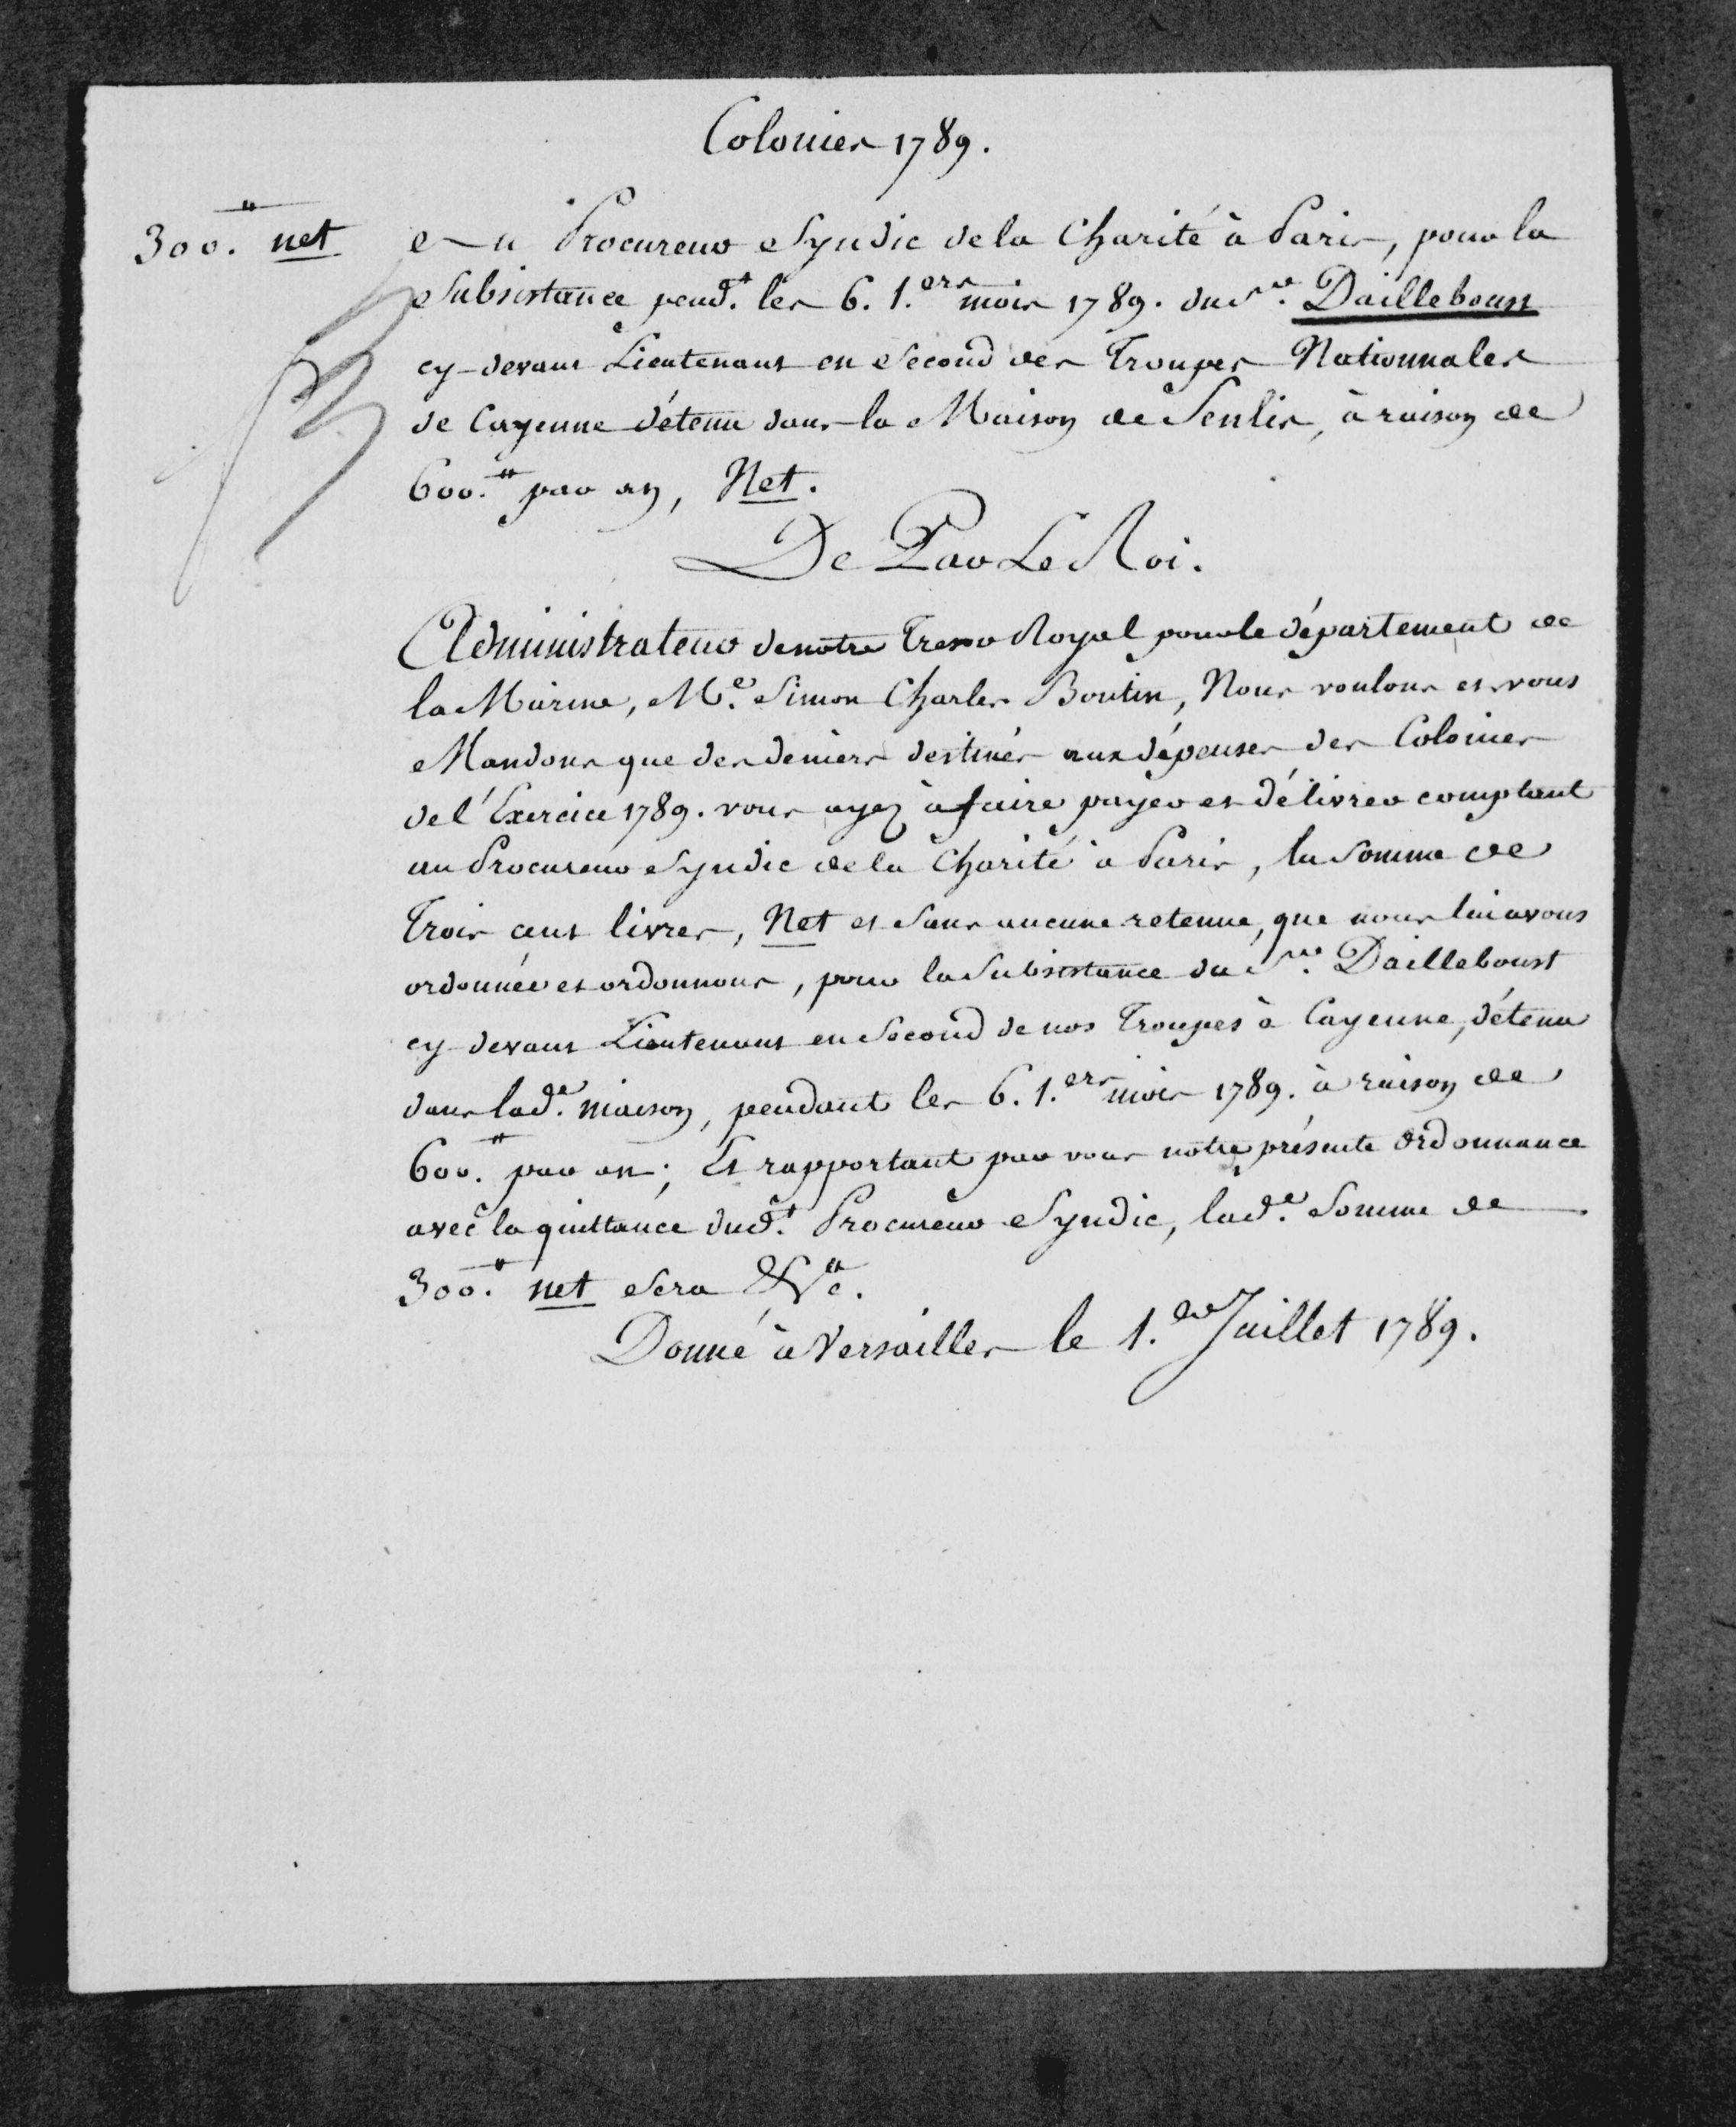 Colonies 1789.
300.₶ net Au Procureur Syndic de la Charité à Paris, pour la
Subsistance pend.t les 6. 1.ers mois 1789. du S.r Dailleboust
cy-devant Lieutenant en Second des Troupes Nationnales
de Cayenne détenu dans la Maison de Senlis, à raison de
600.₶ par an, Net.
De Par Le Roi.
Administrateur de notre Tresor Royal pour le département de
la Marine, M.e Simon Charles Boutin, Nous voulons et vous
Mandons que des deniers destinés aux dépenses des Colonies
de l'Exercice 1789. vous ayez à faire payer et délivrer comptant
au Procureur Syndic de la Charité à Paris, la Somme de
Trois cent livres, Net et Sans aucune retenue, que nous lui avons
ordonnée et ordonnons, pour la Subsistance du S.r Dailleboust
cy-devant Lieutenant en Second de nos Troupes à Cayenne, détenu
dans lad.e maison, pendant les 6. 1.ers mois 1789. à raison de
600.₶ par an; Et rapportant par vous notre présente Ordonnance
avec la quittance dud.t Procureur Syndic, lad.e Somme de
300.₶ net Sera &c.a
Donné à Versailles le 1.er Juillet 1789.